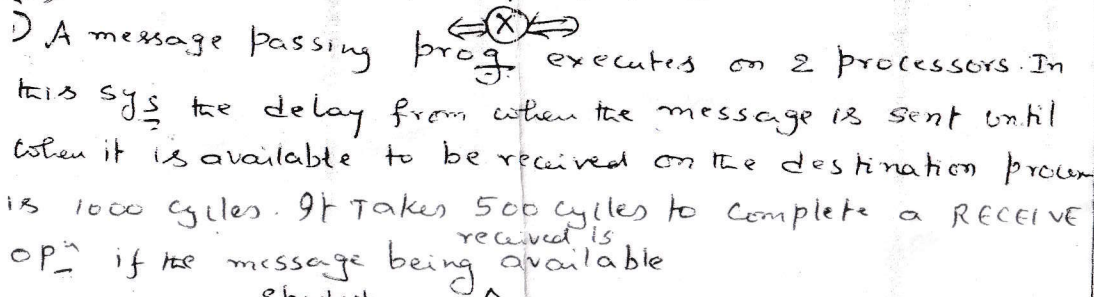 i) A message passing prog. executes on 2 processors. In
this sys the delay from when the message is sent until
when it is available to be received on the destination
is 1000 cycles. It Takes 500 cycles to complete a RECEIVE
opn if the message being received is available